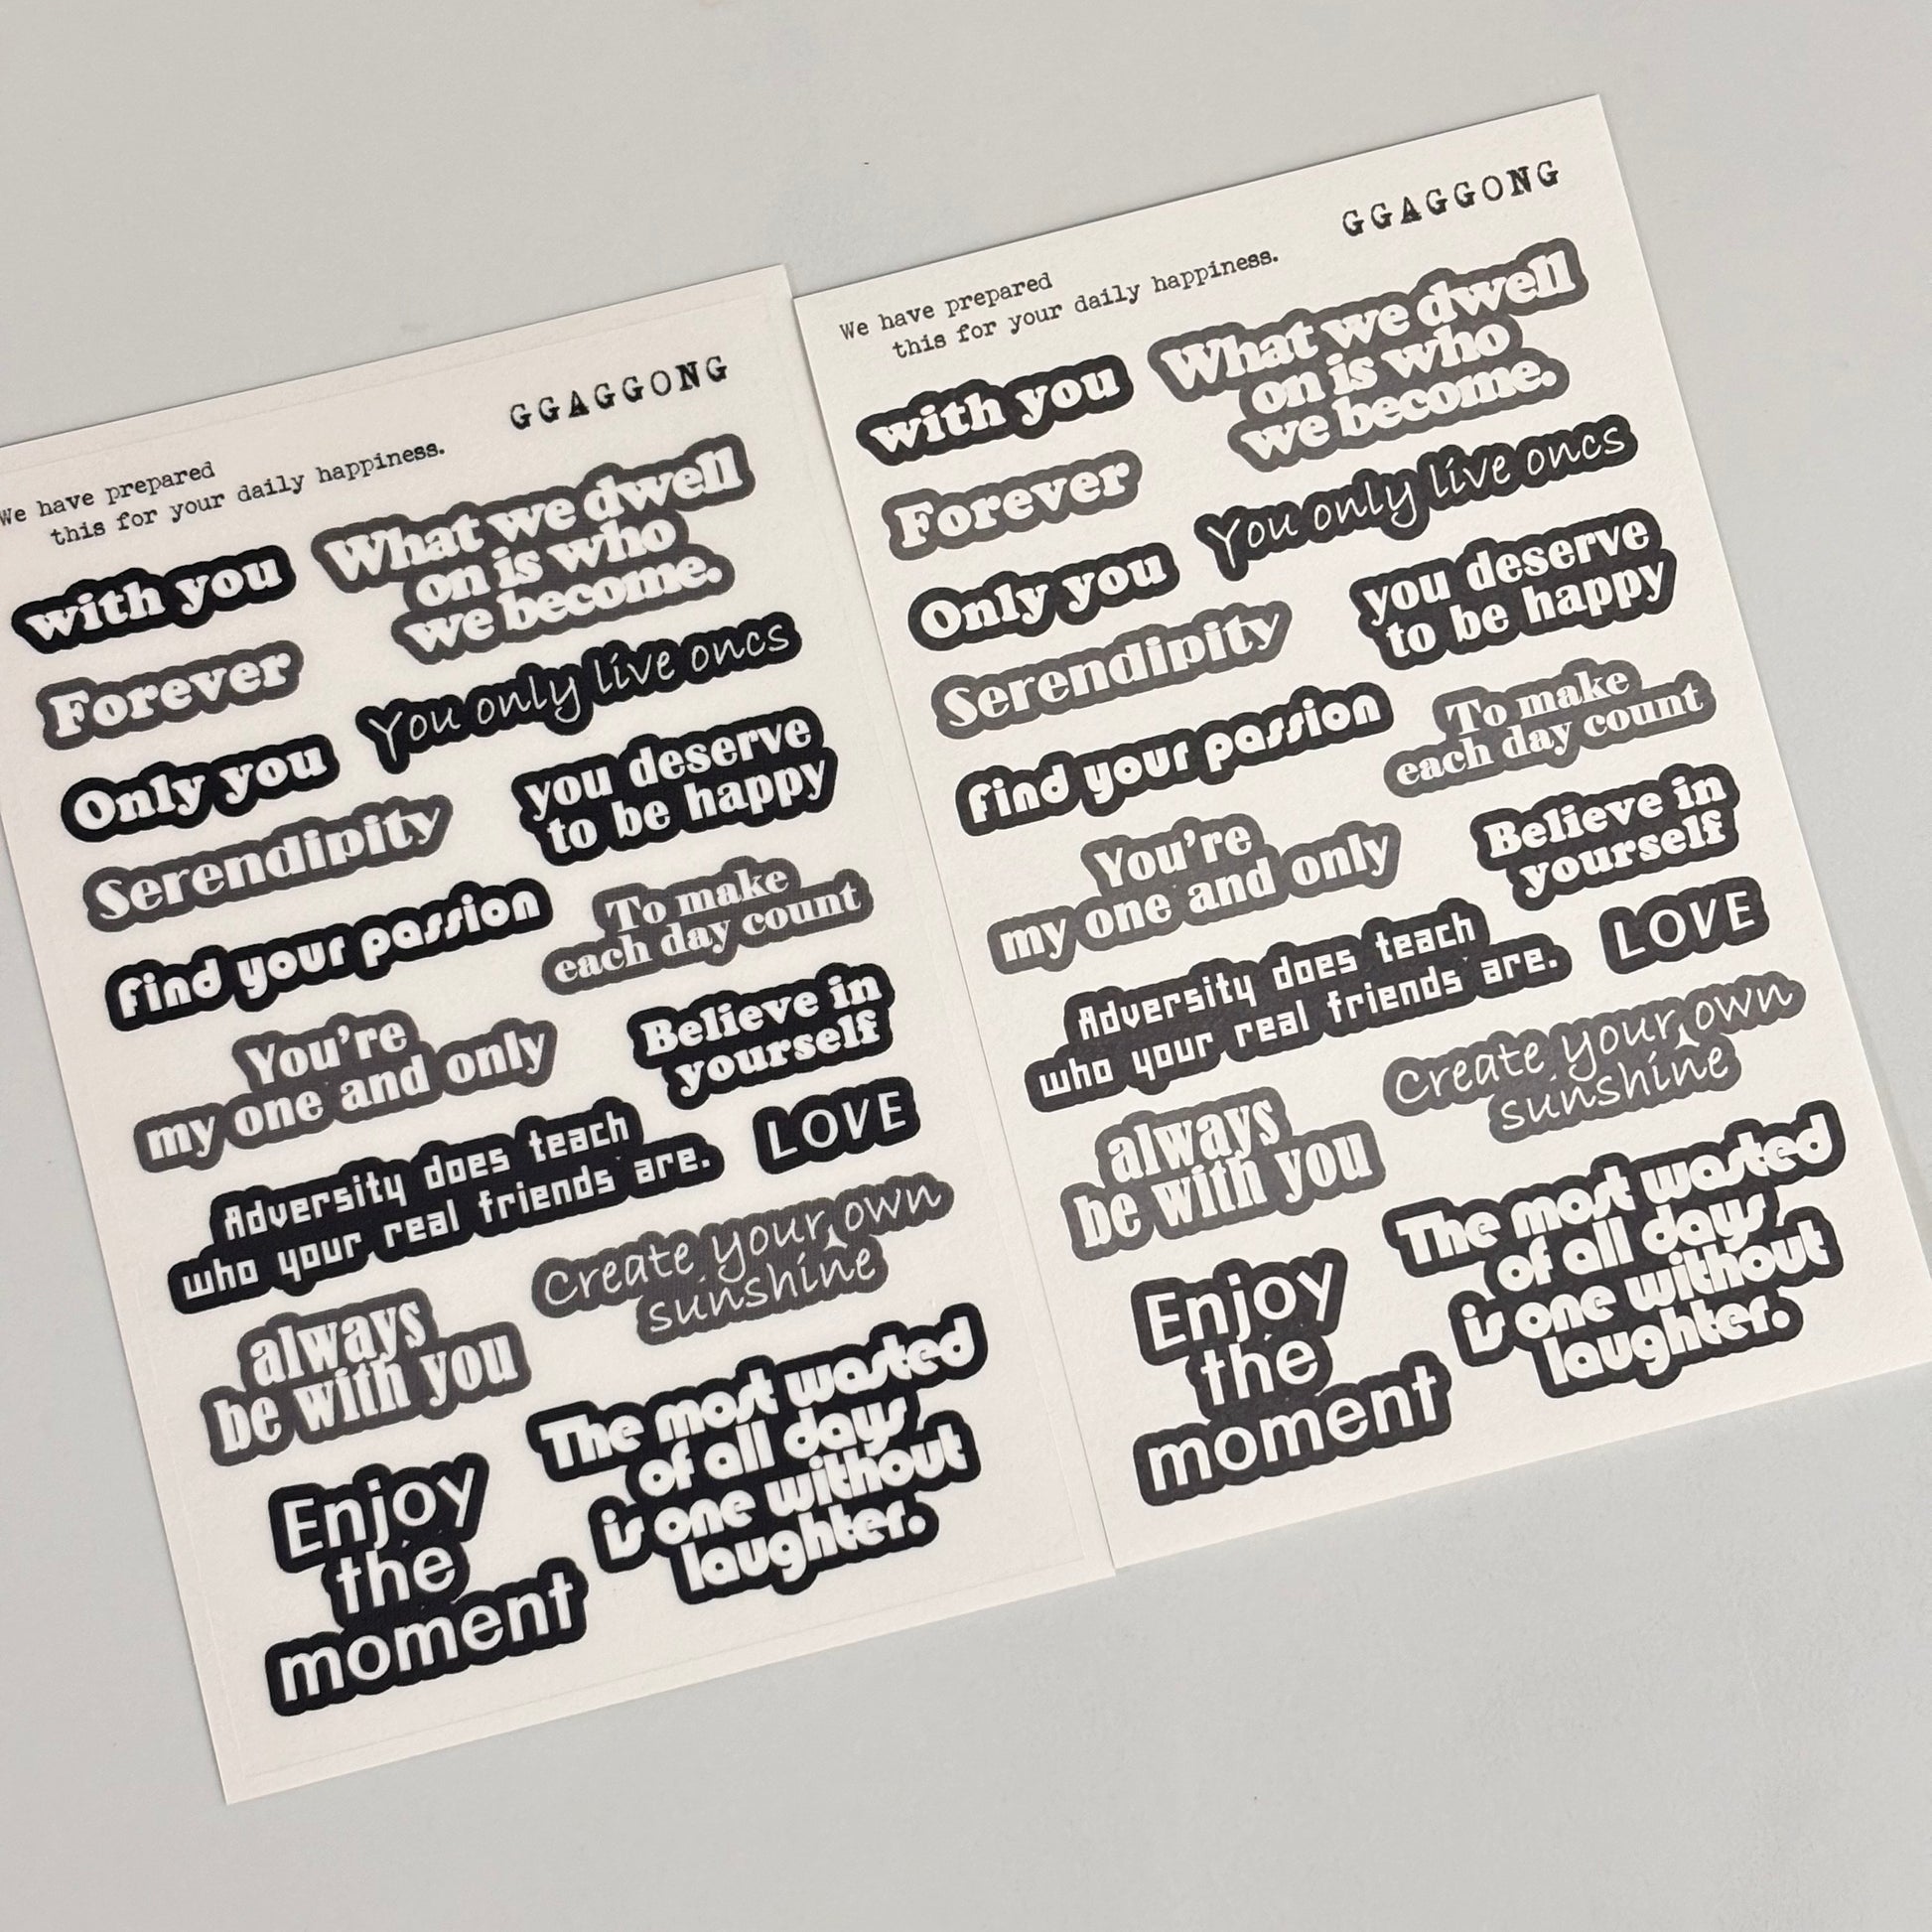 GGAGGONG
We have prepared
this for your daily happiness.
with you
What we dwell
on is who
we become.
Forever
You only live oncs
Only you
you deserve
to be happy
Serendipity
To make
each day count
find your passion
Believe in
yourself
You're
my one and only
LOVE
Adversity does teach
who your real friends are.
Create your own
sunshine
always
be with you
The most wasted
of all days
is one without
laughter.
Enjoy
the
moment
GGAGGONG
We have prepared
this for your daily happiness.
with you
What we dwell
on is who
we become.
Forever
You only live oncs
Only you
you deserve
to be happy
Serendipity
To make
each day count
find your passion
Believe in
yourself
You're
my one and only
LOVE
Adversity does teach
who your real friends are.
Create your own
sunshine
always
be with you
The most wasted
of all days
is one without
laughter.
Enjoy
the
moment